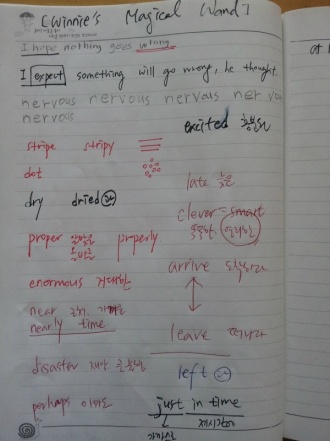 [Winnie's Magical Wand]
I hope nothing goes wrong
I expect something will go wrong, he thought.
nervous nervous nervous nervous
nervous
excited 흥분된
stripe stripy
dot
late 늦은
dry dried
clever = smart
똑똑한 영리한
proper 알맞은 properly
enormous 거대한
arrive 도착하다
near
nearly time
leave 떠나다
disaster 재난
left
perhaps 아마도
just in time